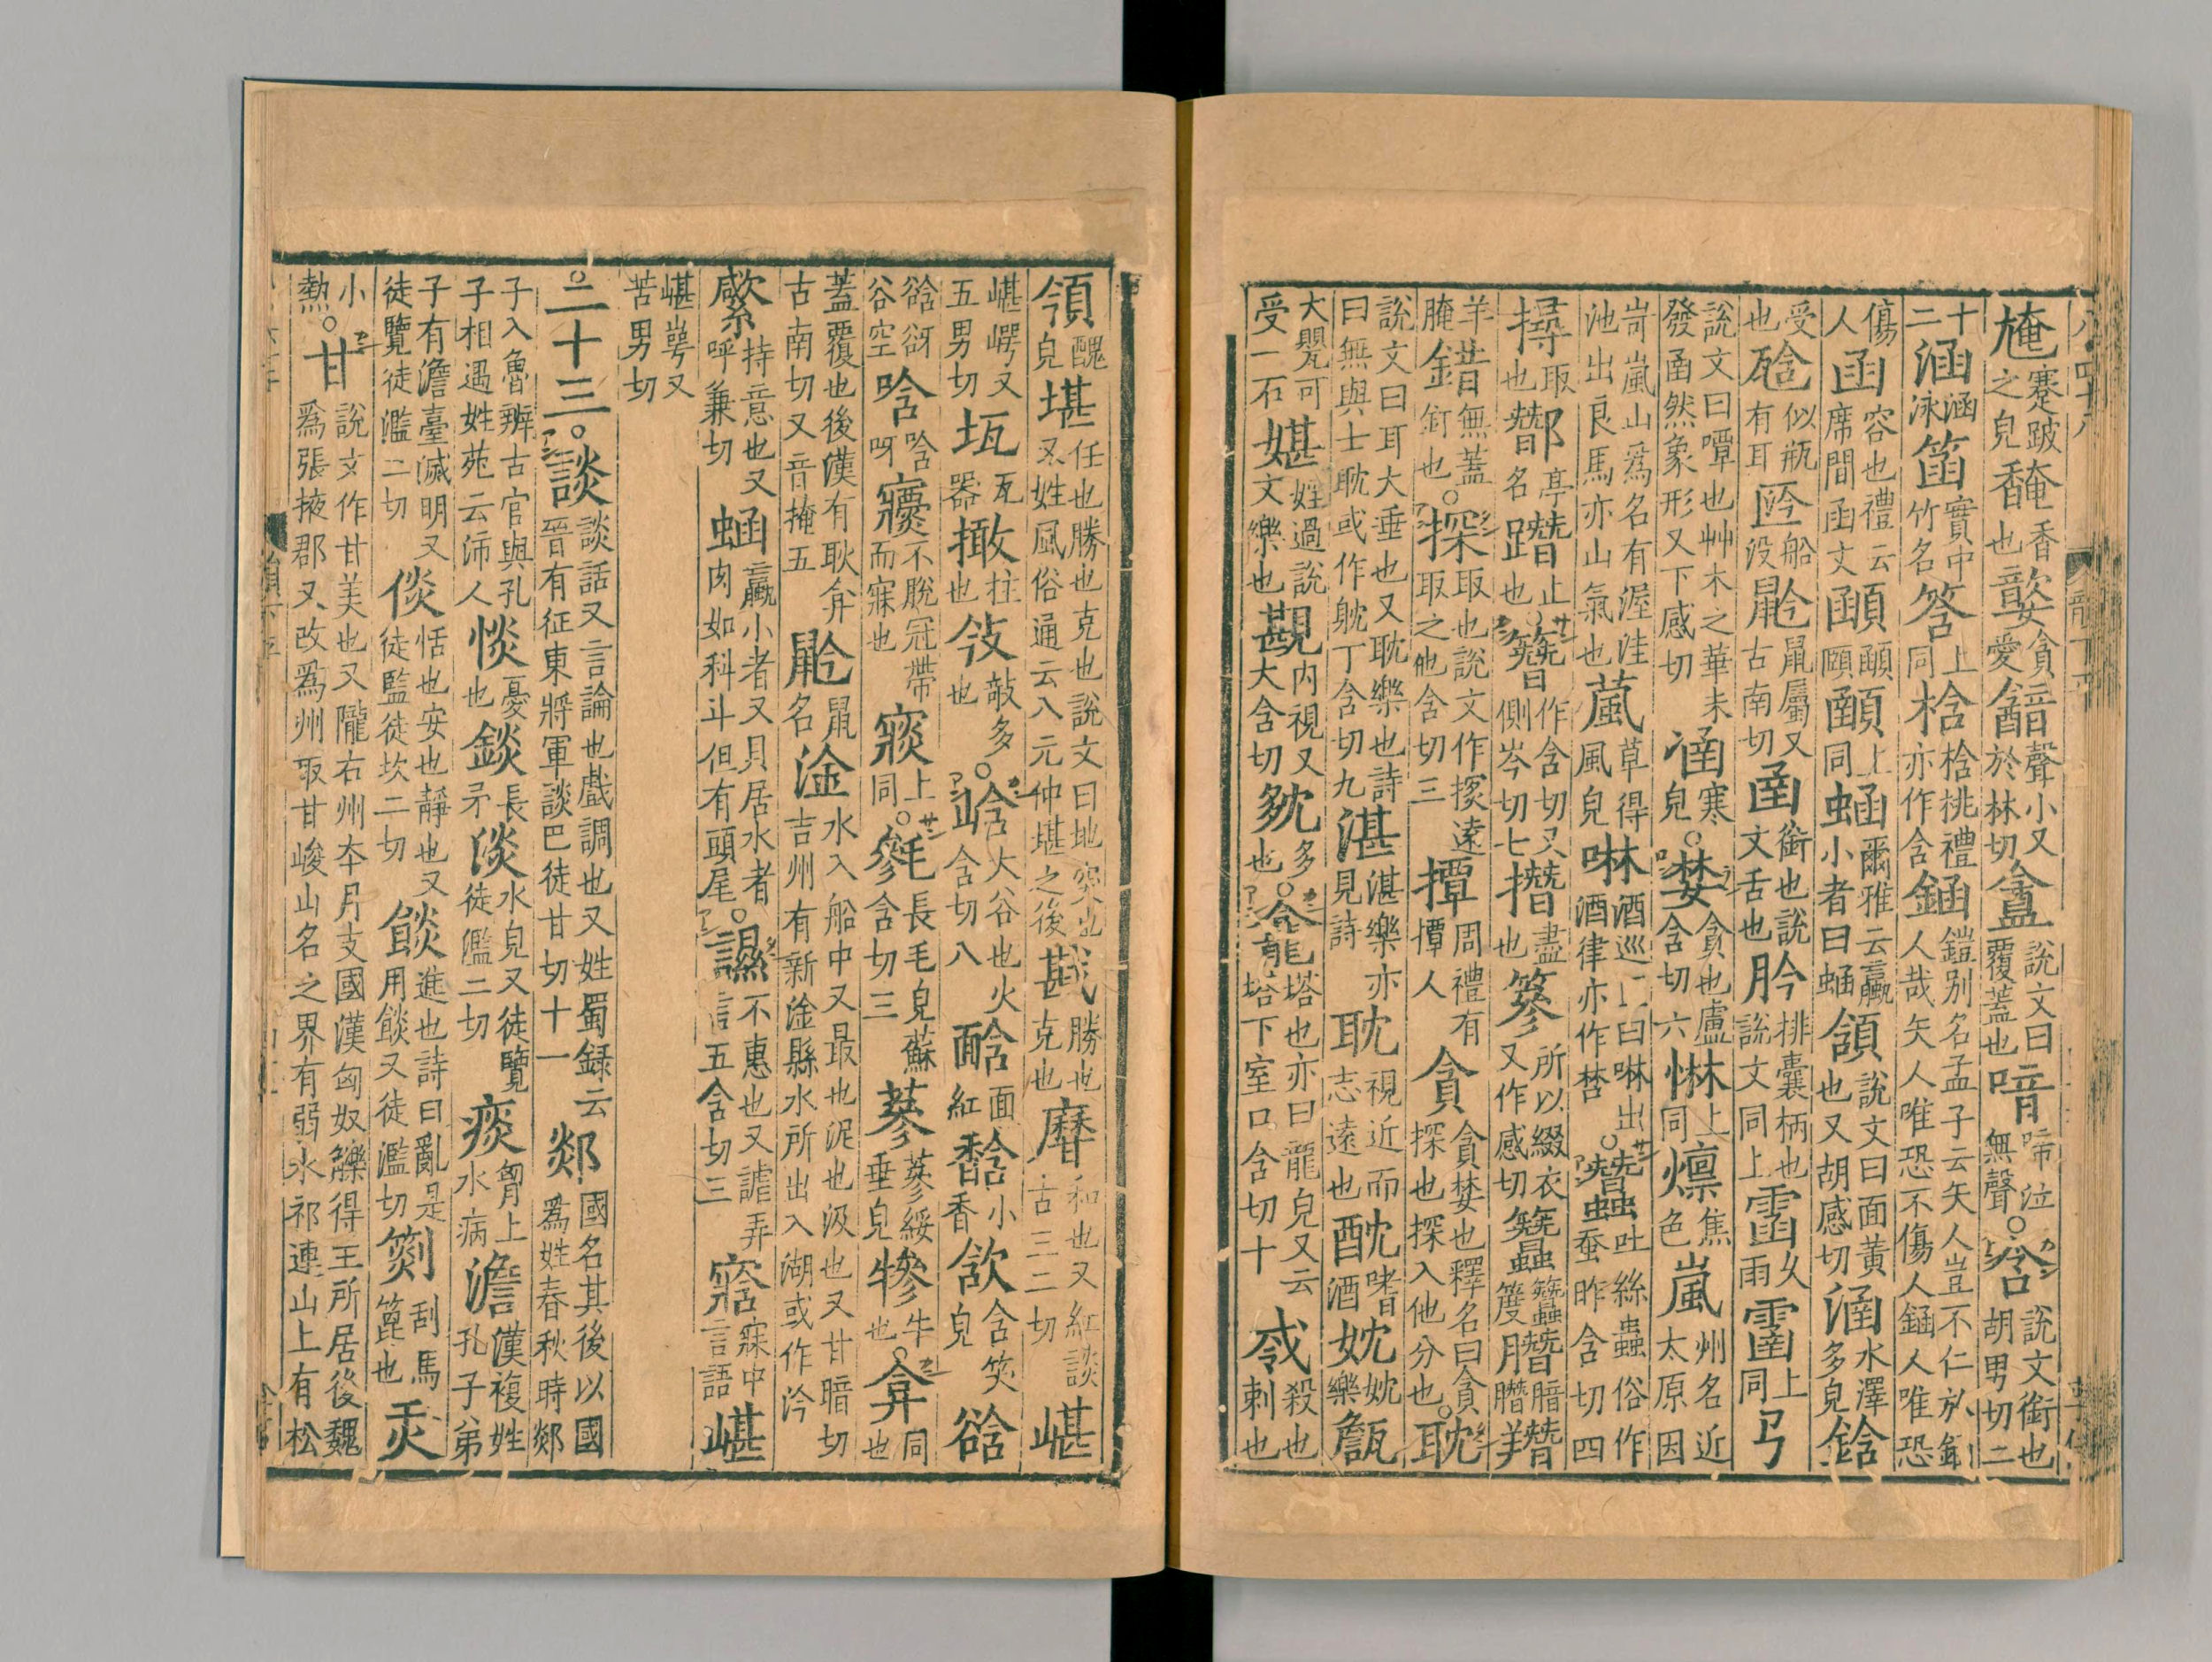 㡋蹇跛之皃馣香也䤃貪愛韽聲小又於林切盦說文曰覆蓋也喑啼泣無聲○含說文銜也胡男切二
十二涵涵泳䈄實中竹名筨上同梒梒桃禮亦作含鋡鎧別名孟子云矢人豈不仁於函人哉矢人唯恐不傷人函人唯恐
傷人函容也禮云席間函丈顄頤顄上同蜬爾雅云蠃小者曰蜬頷說文曰面黃也又胡感切涵水澤多皃鋡
受也㼨似瓶有耳船没鼠屬又古南切圅銜也說文舌也肣排囊柄也說文同上霝久雨上同㔾
說文曰嘾也艸木之華未發圅然象形又下感切寒皃○婪貪也盧含切六惏上同燣焦色嵐州名近太原因
岢嵐山爲名有渥洼池出良馬亦山氣也葻草得風皃啉酒巡匝曰啉出酒律亦作㭩○蠶吐絲蟲俗作蚕昨含切四
撏取也鄫亭名蹔止也○簪作含切又側岑切七撍盡也篸所以綴衣又作感切簪篗䐶腤䐶
羊腌䥘無蓋釘也○探取也說文作撢遠取之他含切三撢周禮有撢人貪貪婪也釋名曰貪探也探入他分也○耽
說文曰耳大垂也又耽樂也詩曰無與士耽或作躭丁含切九湛湛樂亦見詩眈視近而志遠也酖嗜酒妉妉樂㽎
大甖可受一石媅姪過說文樂也𧡪內視又大含切𡖓多也○龕塔也亦曰龍皃又云塔下室口含切十戡殺也刺也
頷醜皃堪任也勝也克也說文曰地突也又姓風俗通云八元仲堪之後戡勝也克也䃫和也又紅談古三二切嵁
嵁崿又五男切㘱瓦器撖柱也㪁敲多也○谽大谷也火含切八䤴面紅馠小香欱含笑皃谽
谽谺谷空唅唅呀㝲不脫冠帶而寐也上同○毿長毛皃蘇含切三蔘蔘綏垂皃犙牛也○弇同也
蓋覆也後漢有耿弇古南切又音掩五䶃鼠名淦水入船中又最也泥也汲也又甘暗切吉州有新淦縣水所出入湖或作汵
㰹持意也又呼兼切蜬蠃小者又貝居水者肉如科斗但有頭尾○䜗不惠也又謔弄言五含切三㝘寐中言語嵁
嵁崿又苦男切
○二十三○談談話又言論也戲調也又姓蜀録云晉有征東將軍談巴徒甘切十一郯國名其後以國爲姓春秋時郯
子入魯辨古官與孔子相遇姓苑云沛人惔憂也錟長矛淡水皃又徒覽徒濫二切痰胷上水病澹漢複姓孔子弟
子有澹臺滅明又徒覽徒濫二切倓恬也安也靜也又徒監徒坎二切餤進也詩曰亂是用餤又徒濫切䉞刮馬箆也炎
小熱○甘說文作甘美也又隴右州本月支國漢匈奴觻得王所居後魏爲張掖郡又改爲州取甘峻山名之界有弱水祁連山上有松